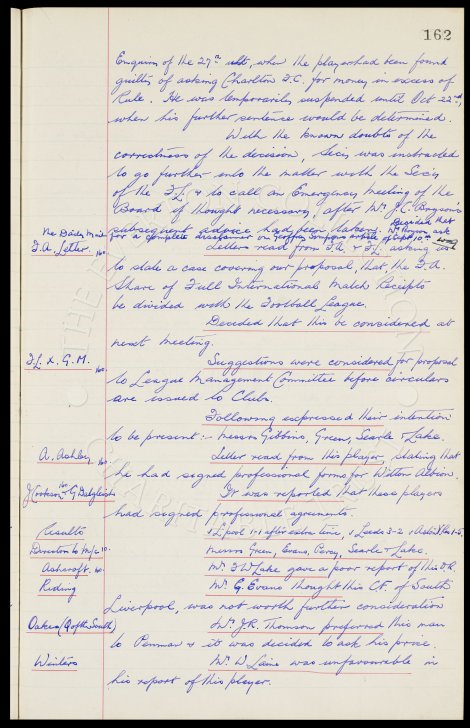 162
Enquiry of the 27th ult, when the player had been found
guilty of asking Charlton F.C. for money in excess of
Rule. He was temporarily suspended until Oct 22nd,
when his further sentence would be determined.
With the known doubts of the
correctness of the decision, Secy was instructed
to go further into the matter with the Secy
of the F.L. & to call an Emergency meeting of the
Board if thought necessary, after Mr J.C. Bryson's
subsequent advice had been taken.
Decided that Mr Bryson ask
The Daily Mail
for a complete disclaimer on article of Sept 10th
F.A. Letter.
Letters read from F.A. & F.L. asking
to state a case covering our proposal that the F.A.
Share of Full International Match Receipts
be divided with the Football League.
Decided that this be considered at
next meeting.
F.L. x. G.M.
Suggestions were considered for proposal
to League Management Committee before circulars
are issued to Clubs.
Following expressed their intention
to be present :- Messrs Gibbins, Green, Searle & Lake.
A. Ashley
Letter read from this player, stating that
he had signed professional forms for Witton Albion.
J Cookson & G Dalgleish
It was reported that these players
had signed professional agreements.
Results
v L'pool 1-1 after extra time, v Leeds 3-2, v Aston Villa 1-5.
Directors to M/c
Messrs Green, Evans, Percy, Searle & Lake.
Ashcroft.
Mr F W Lake gave a poor report of this
Riding
Mr G. Evans thought this C.F. of South
Liverpool, was not worth further consideration
Oakes (Q of the South)
Mr J.R. Thomson preferred this man
to Penman & it was decided to ask his price.
Winters
Mr W Laine was unfavourable in
his report of this player.